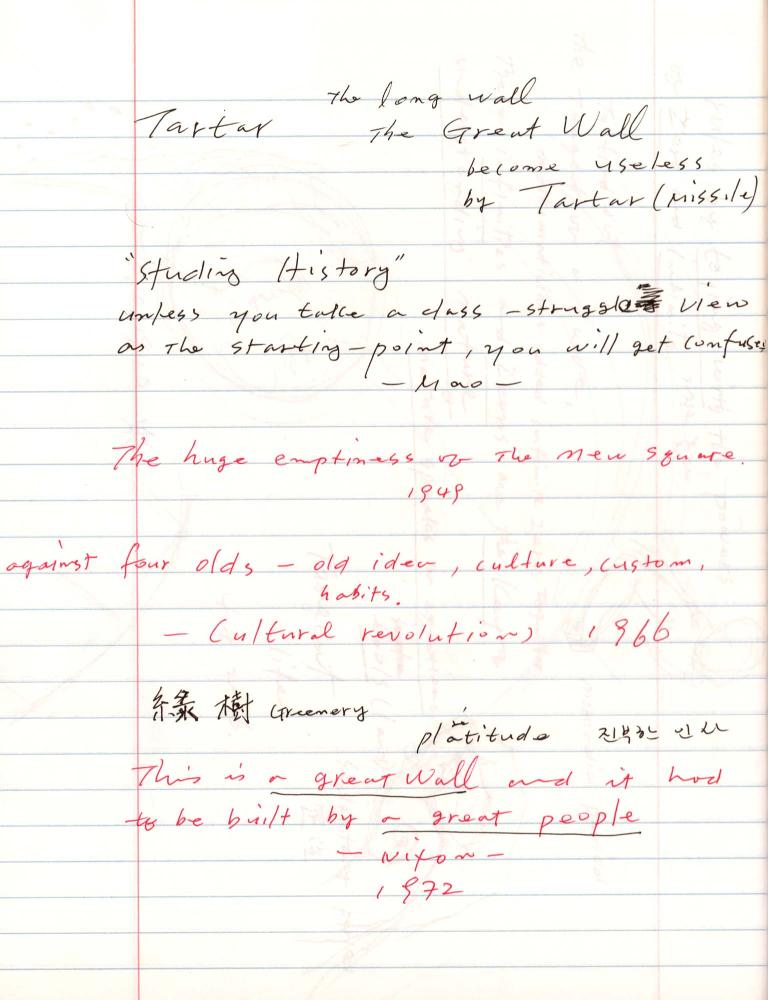 The long wall
Tartar The Great Wall
become useless
by Tartar (Missile)
"Studing History"
unless you take a class-struggle view
as the starting-point, you will get confuse
- Mao -
The huge emptiness of the new square.
1949
against four olds - old idea, culture, custom,
habits.
- Cultural revolution) 1966
綠樹 Greenery
platitude 진부한 인사
This is a great Wall and it had
to be built by a great people
- Nixon -
1972